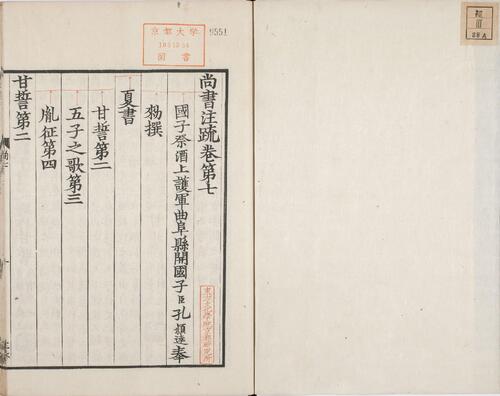 尚書注疏卷第七
國子祭酒上護軍曲阜縣開國子臣孔穎達奉
勑撰
夏書
甘誓第二
五子之歌第三
胤征第四
甘誓第二
京都大学
図書
9551